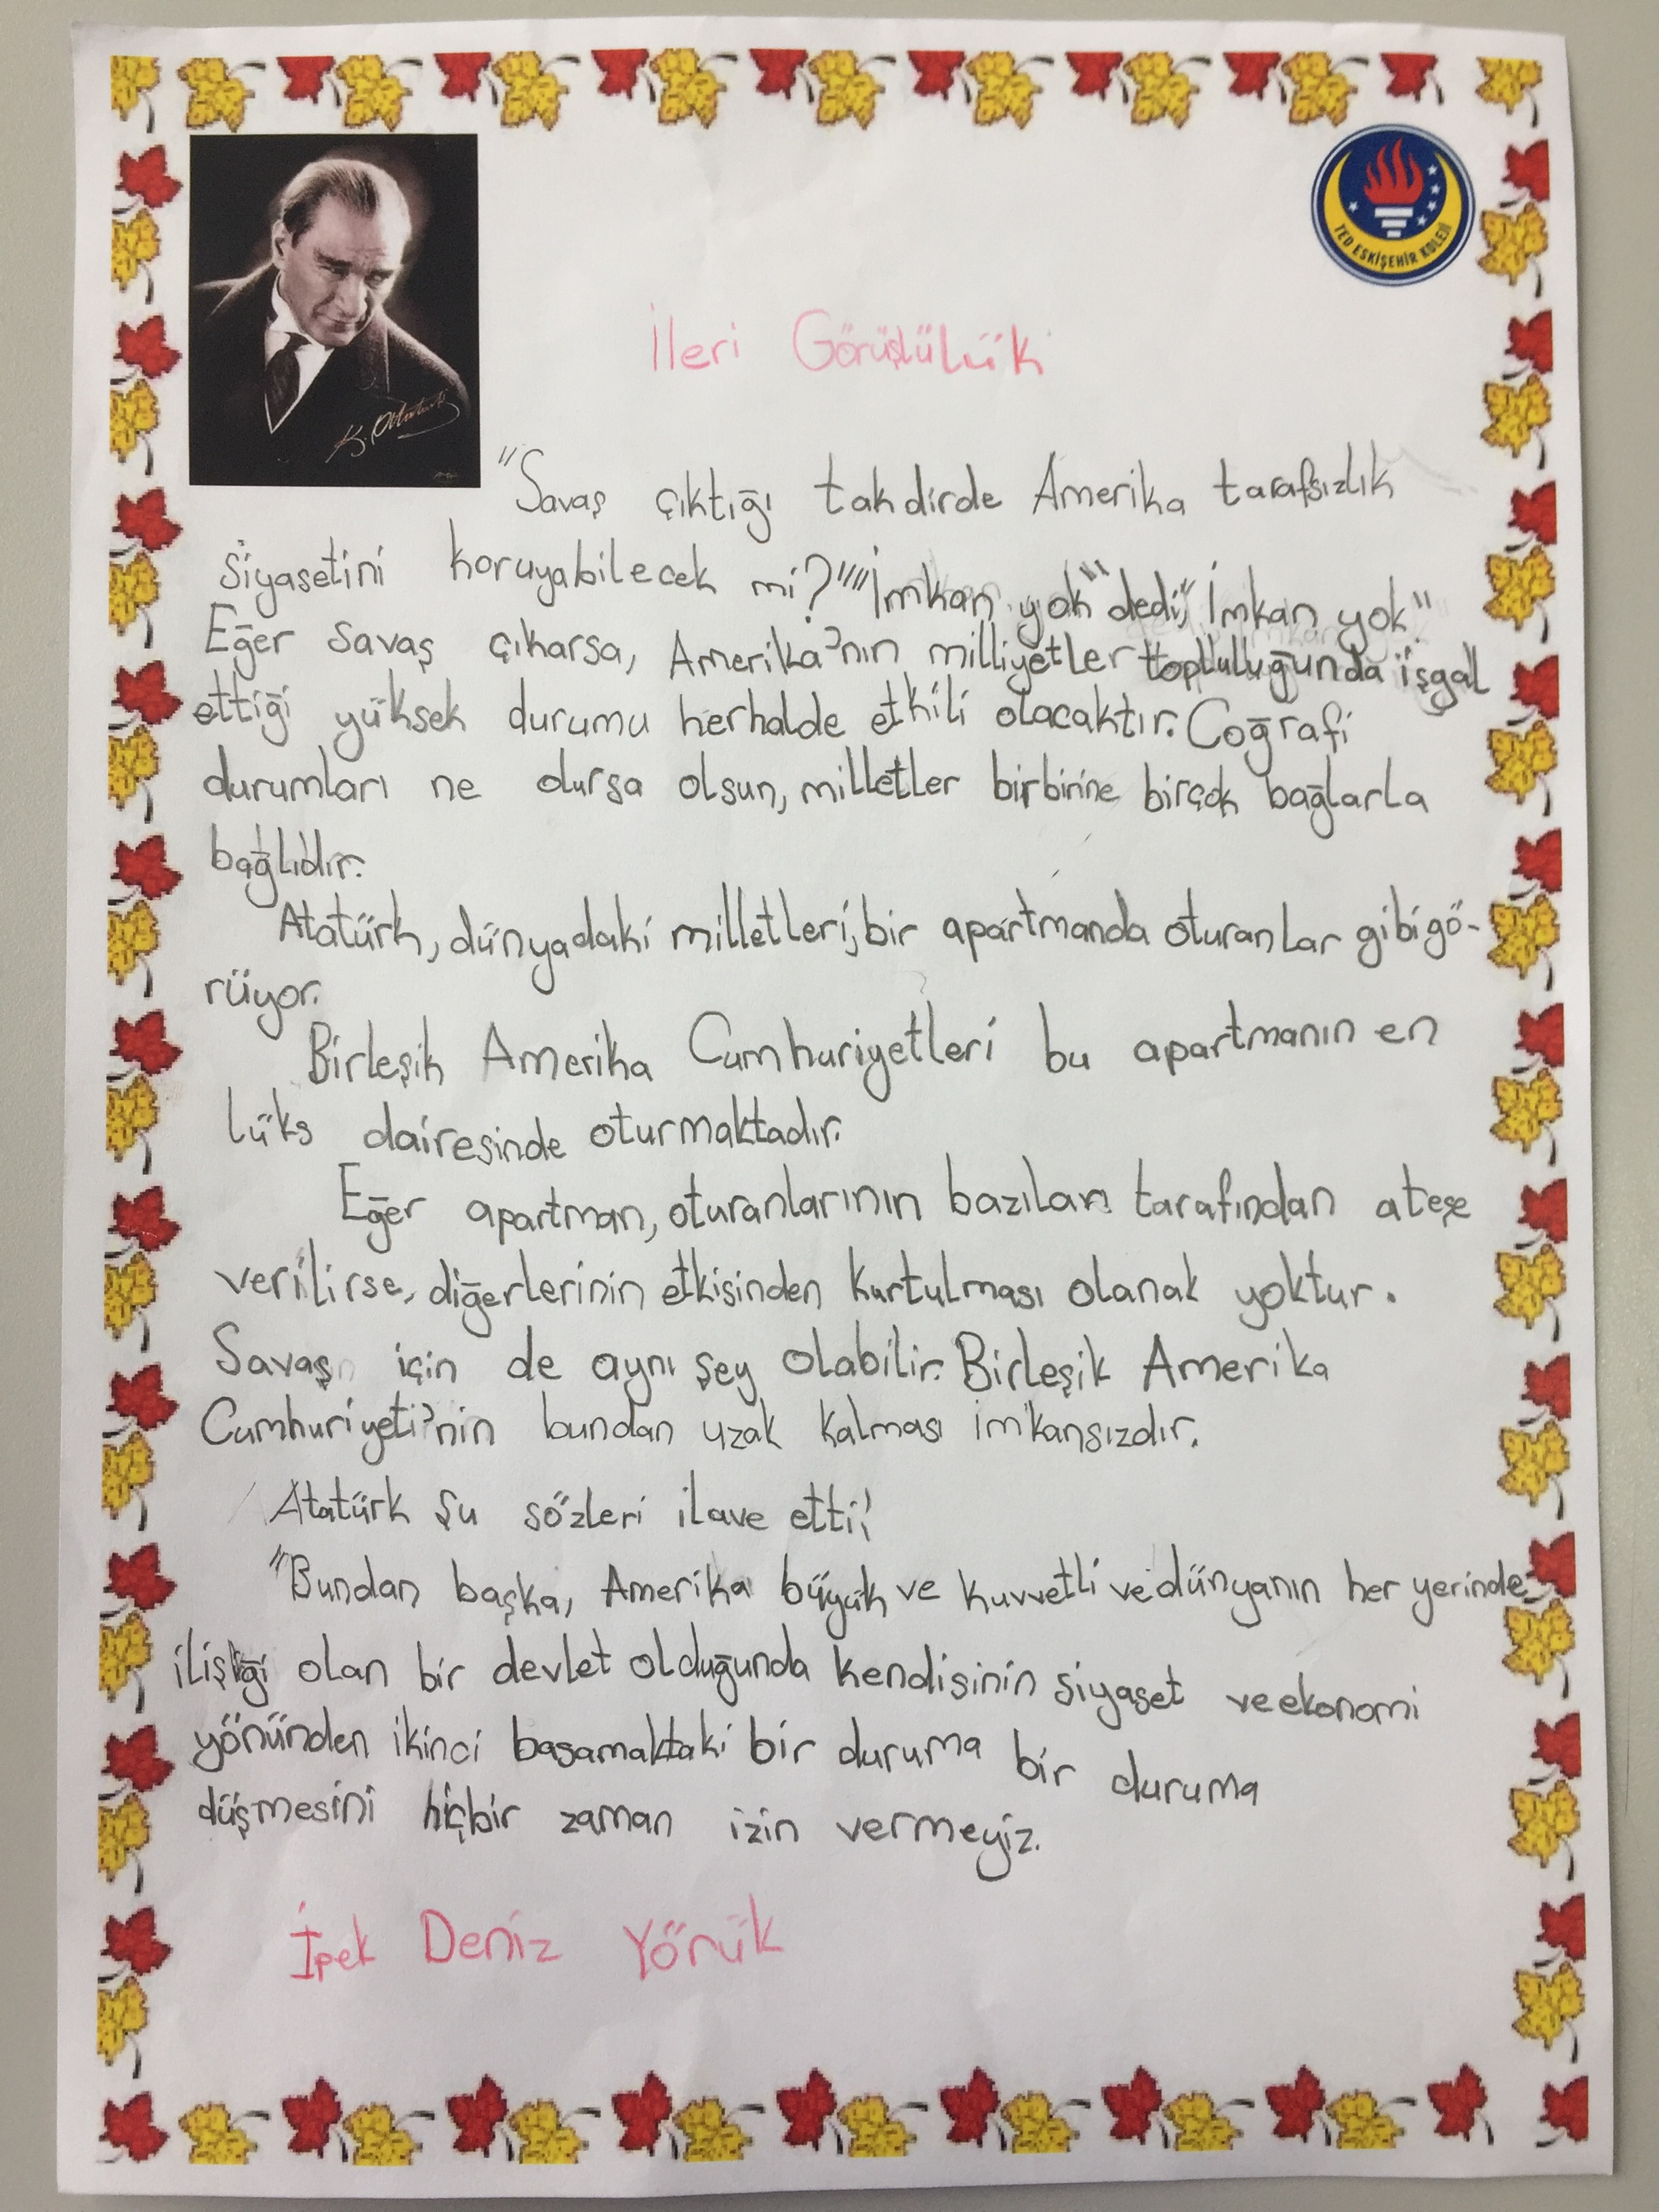 K. Atatürk
TED ESKİŞEHİR KOLEJİ
İleri Görüşlülük
"Savaş çıktığı takdirde Amerika tarafsızlık
siyasetini koruyabilecek mi?""İmkan yok" dedi," İmkan yok"
Eğer savaş çıkarsa, Amerika'nın milliyetler topluluğunda işgal
ettiği yüksek durumu herhalde etkili olacaktır. Coğrafi
durumları ne olursa olsun, milletler birbirine birçok bağlarla
bağlıdır.
Atatürk, dünyadaki milletleri, bir apartmanda oturanlar gibi gö-
rüyor.
Birleşik Amerika Cumhuriyetleri bu apartmanın en
lüks dairesinde oturmaktadır.
Eğer apartman, oturanlarının bazıları tarafından ateşe
verilirse, diğerlerinin etkisinden kurtulması olanak yoktur.
Savaş için de aynı şey olabilir. Birleşik Amerika
Cumhuriyeti'nin bundan uzak kalması imkansızdır.
Atatürk şu sözleri ilave etti:
"Bundan başka, Amerika büyük ve kuvvetli ve dünyanın her yerinde
ilişiği olan bir devlet olduğunda kendisinin siyaset ve ekonomi
yönünden ikinci basamaktaki bir duruma bir duruma
düşmesini hiçbir zaman izin vermeyiz.
İpek Deniz Yörük